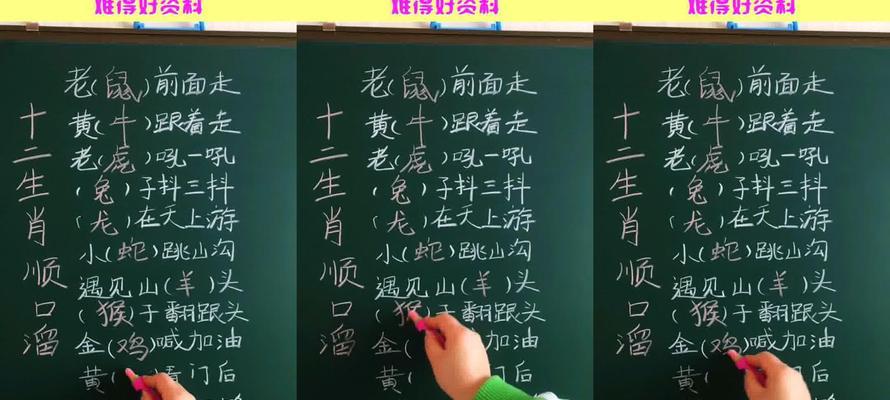 难得好资料
十二生肖顺口溜
老(鼠)前面走
黄(牛)跟着走
老(虎)吼一吼
(兔)子抖三抖
(龙)在天上游
小(蛇)跳山沟
遇见山(羊)头
(猴)子翻跟头
金(鸡)喊加油
黄(看门后
难得好资料
十二生肖顺口溜
老(鼠)前面走
黄(牛)跟着走
老(虎)吼一吼
(兔)子抖三抖
(龙)在天上游
小(蛇)跳山沟
遇见山(羊)头
(猴)子翻跟头
金(加油
黄(门后
难得好资料
十二生肖顺口溜
老(鼠)前面走
黄(牛)跟着走
老(虎)吼一吼
(兔)子抖三抖
(龙)在天上游
小(蛇)跳山沟
遇见山(羊)头
(猴)子翻跟头
金(鸡)喊加油
黄(门后